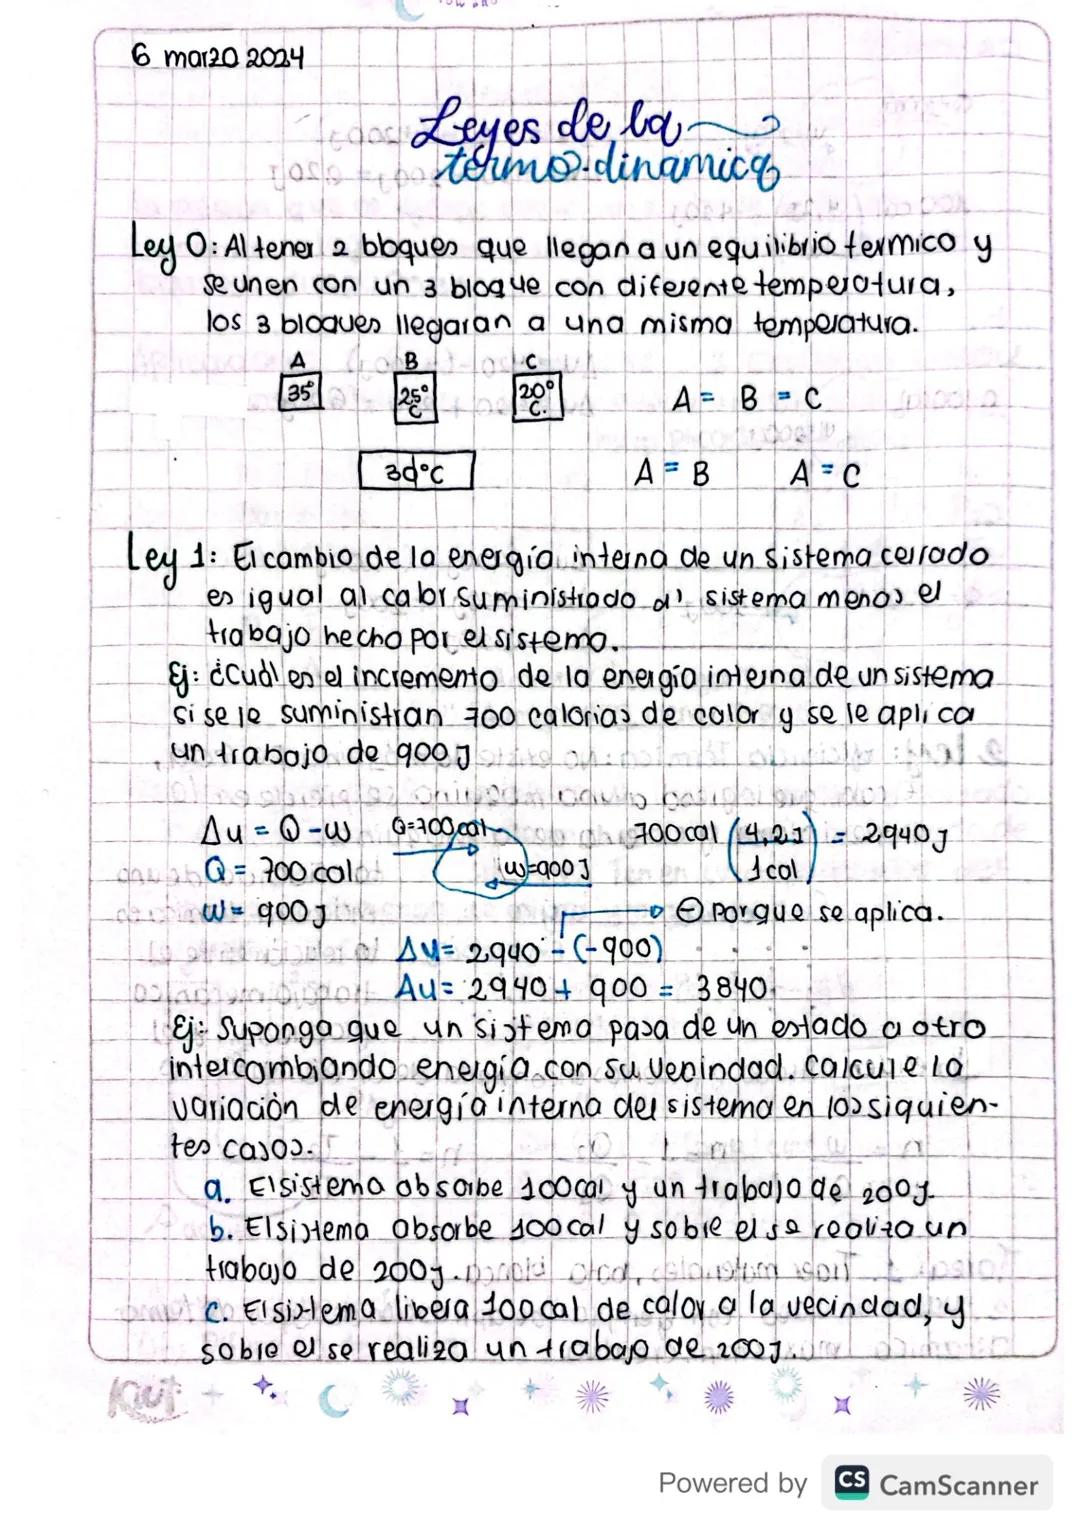 6 marzo 2024
Leyes de la
termo-dinamica
Ley 0: Al tener 2 bloques que llegan a un equilibrio termico y
se unen con un 3 bloque con diferente temperatura,
los 3 bloques llegaran a una misma temperatura.
A B C
35° 25°C 20°C. A = B = C
30°C A = B A = C
Ley 1: El cambio de la energía interna de un sistema cerrado
es igual al calor suministrado al sistema menos el
trabajo hecho por el sistema.
Ej: ¿Cuál es el incremento de la energía interna de un sistema
si se le suministran 700 calorias de calor y se le aplica
un trabajo de 900J
Δu = Q-w Q=700cal 700cal (4,2J / 1cal) = 2940J
Q = 700 cal w=900J
w = 900J ⊖ Porque se aplica.
Δu = 2940 - (-900)
Δu = 2940 + 900 = 3840
Ej: Suponga que un sistema pasa de un estado a otro
intercambiando energía con su vecindad. Calcule la
variación de energía interna del sistema en los siguien-
tes casos.
a. El sistema absorbe 100cal y un trabajo de 200J.
b. El sistema absorbe 100cal y sobre el se realiza un
trabajo de 200J.
c. El sistema libera 100cal de calor a la vecindad, y
sobre el se realiza un trabajo de 200J.
Kiut
Powered by CS CamScanner